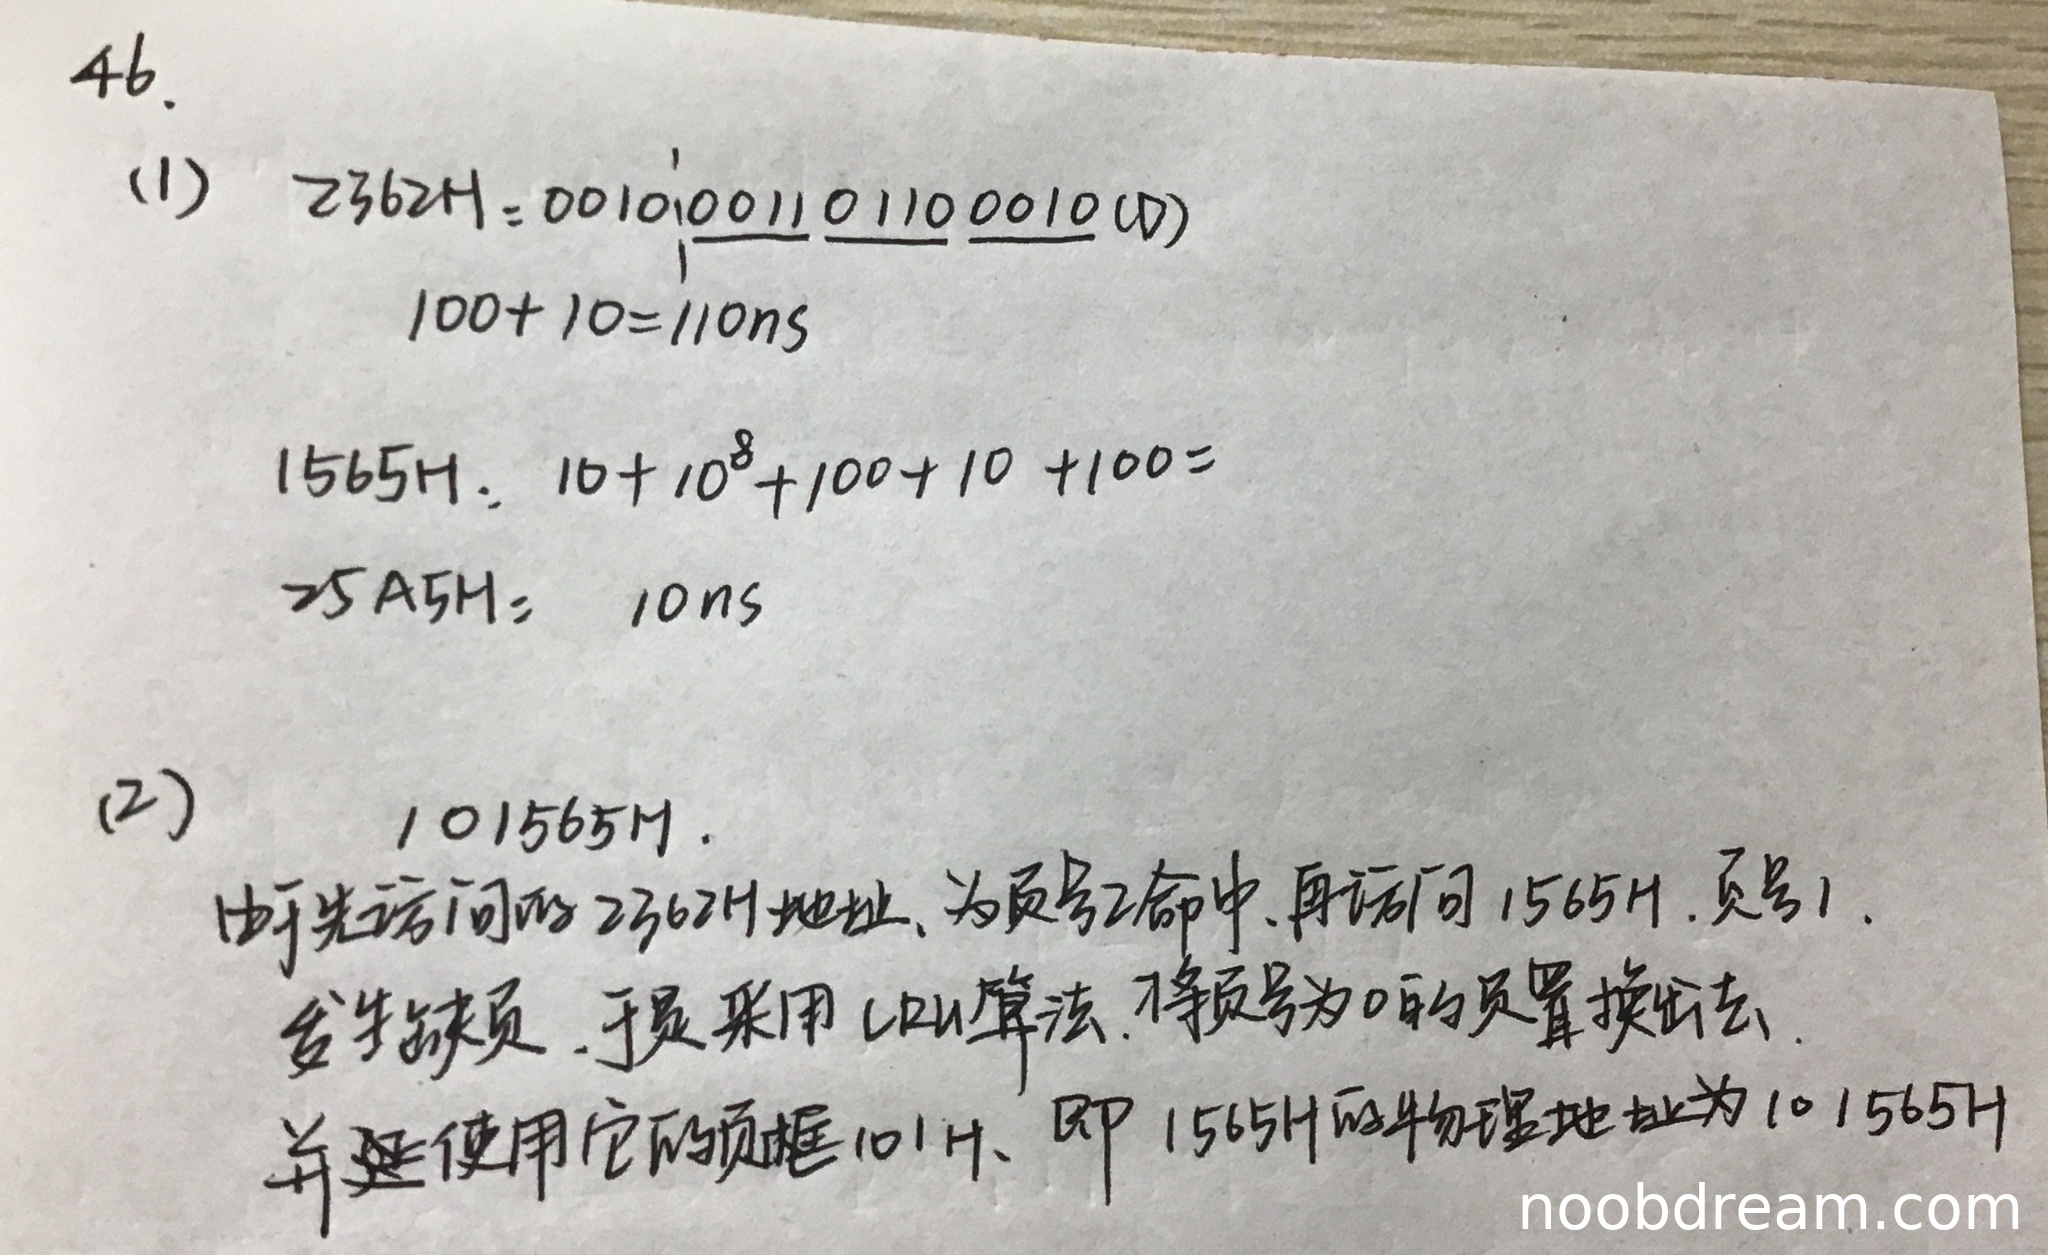 46.
(1) 2362H = 0010 0011 0110 0010 (D)
100+10=110ns
1565H: 10+10⁸+100+10+100=
25A5H= 10ns
(2) 101565H.
由于先访问的2362H地址、为页号2命中、再访问1565H.页号1.
发生缺页.于是采用LRU算法.将页号为0的页置换出去.
并 使用它的页框101H、即1565H的物理地址为101565H
noobdream.com